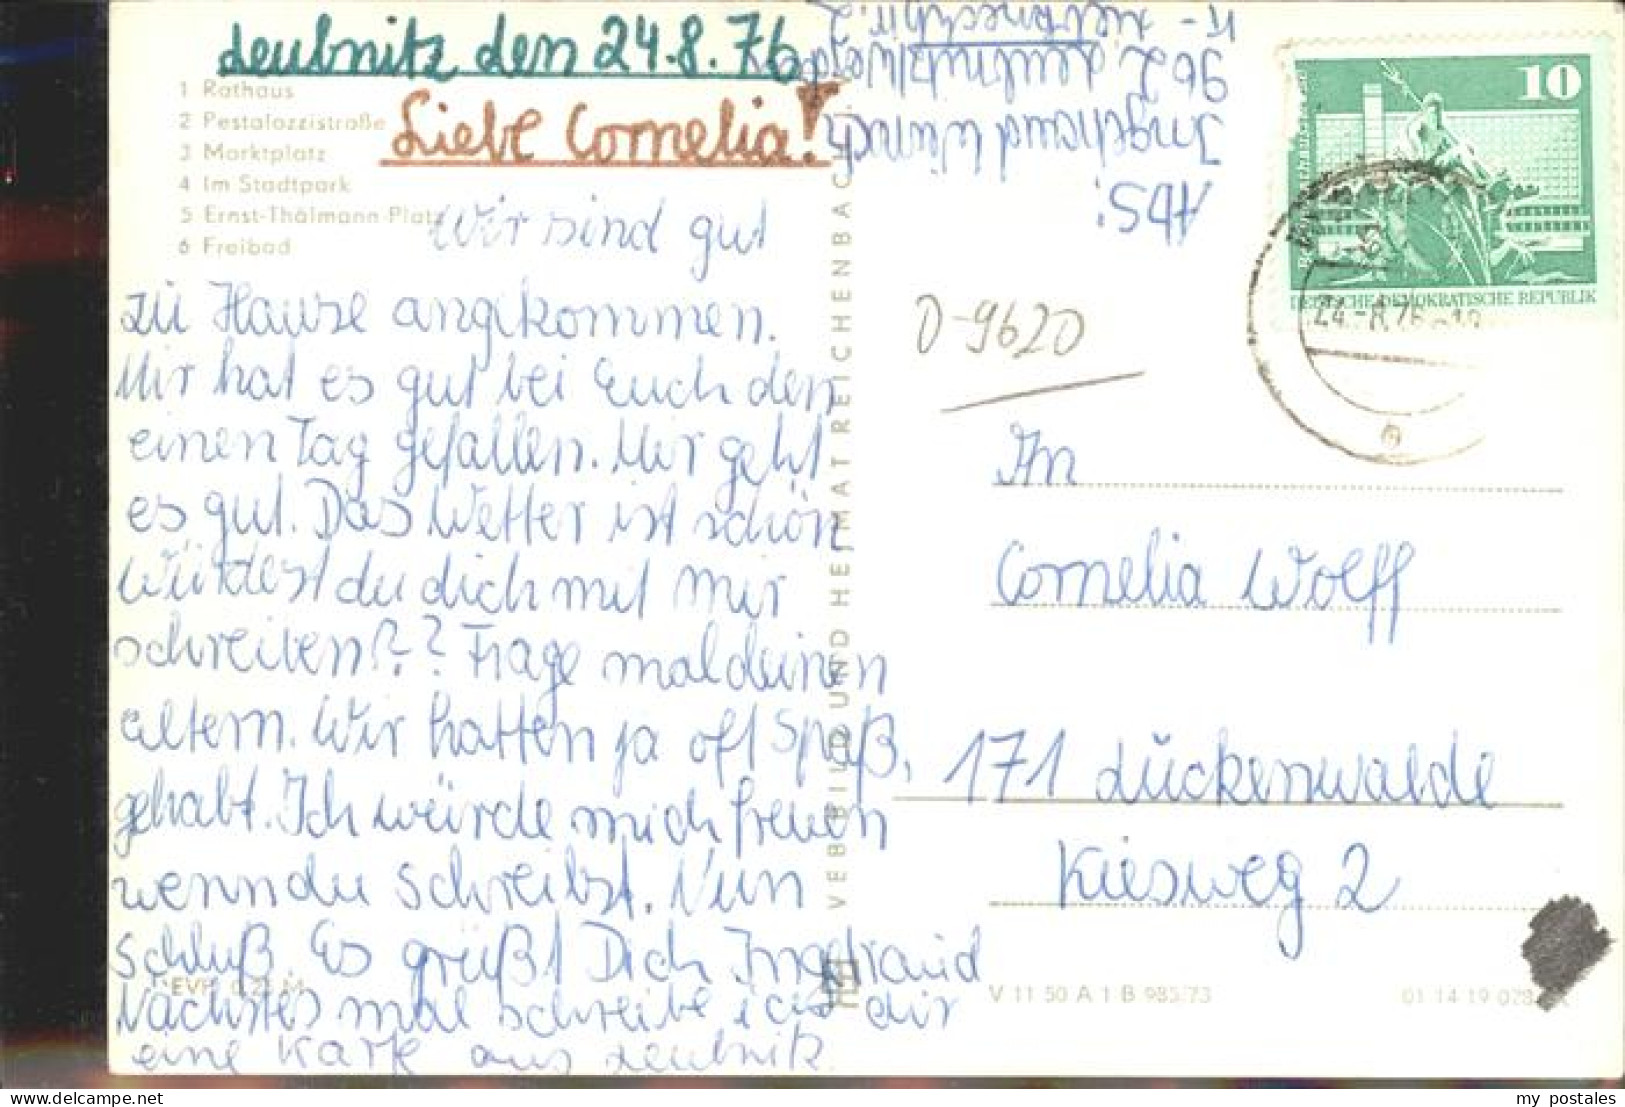 Leubnitz den 24.8.76
1 Rathaus
2 Pestalozzistraße
3 Marktplatz
4 Im Stadtpark
5 Ernst-Thälmann-Platz
6 Freibad
Liebe Cornelia!
Wir sind gut
zu Hause angekommen.
Mir hat es gut bei Euch den
einen Tag gefallen. Mir geht
es gut. Das Wetter ist schön
würdest du dich mit mir
schreiben?? Frage mal deinen
Eltern. Wir hatten ja oft Spaß,
gehabt. Ich würde mich freuen
wenn du schreibst. Nun
Schluß Es grüßt Dich Ingetraud
Nächstes mal schreibe ich dir
eine Karte aus Leubnitz.
EVP 0,25 M
VEB BILD UND HEIMAT REICHENBACH
ABS:
Ingetraud
962 Leubnitz/Werdau
K-Liebknechtstr. 2
10
DEUTSCHE DEMOKRATISCHE REPUBLIK
24.-8.76
D-9620
An
Cornelia Wolff
171 Lückenwalde
Kiesweg 2
V 11 50 A 1 B 985/73
01 14 19 028